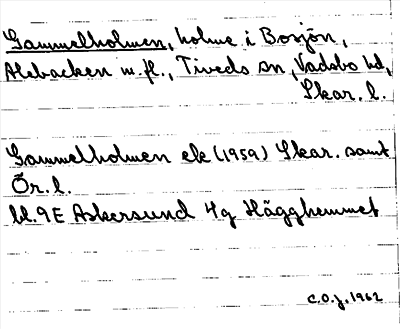 Gammelholmen, holme i Borjön,
Alebacken m.fl., Tiveds sn, Vadsbo hd,
Skar. l.
Gammelholmen ek (1959) Skar. samt
Ör. l.
bl. 9E Askersund 4g Hägghemmet
C.O.J. 1962